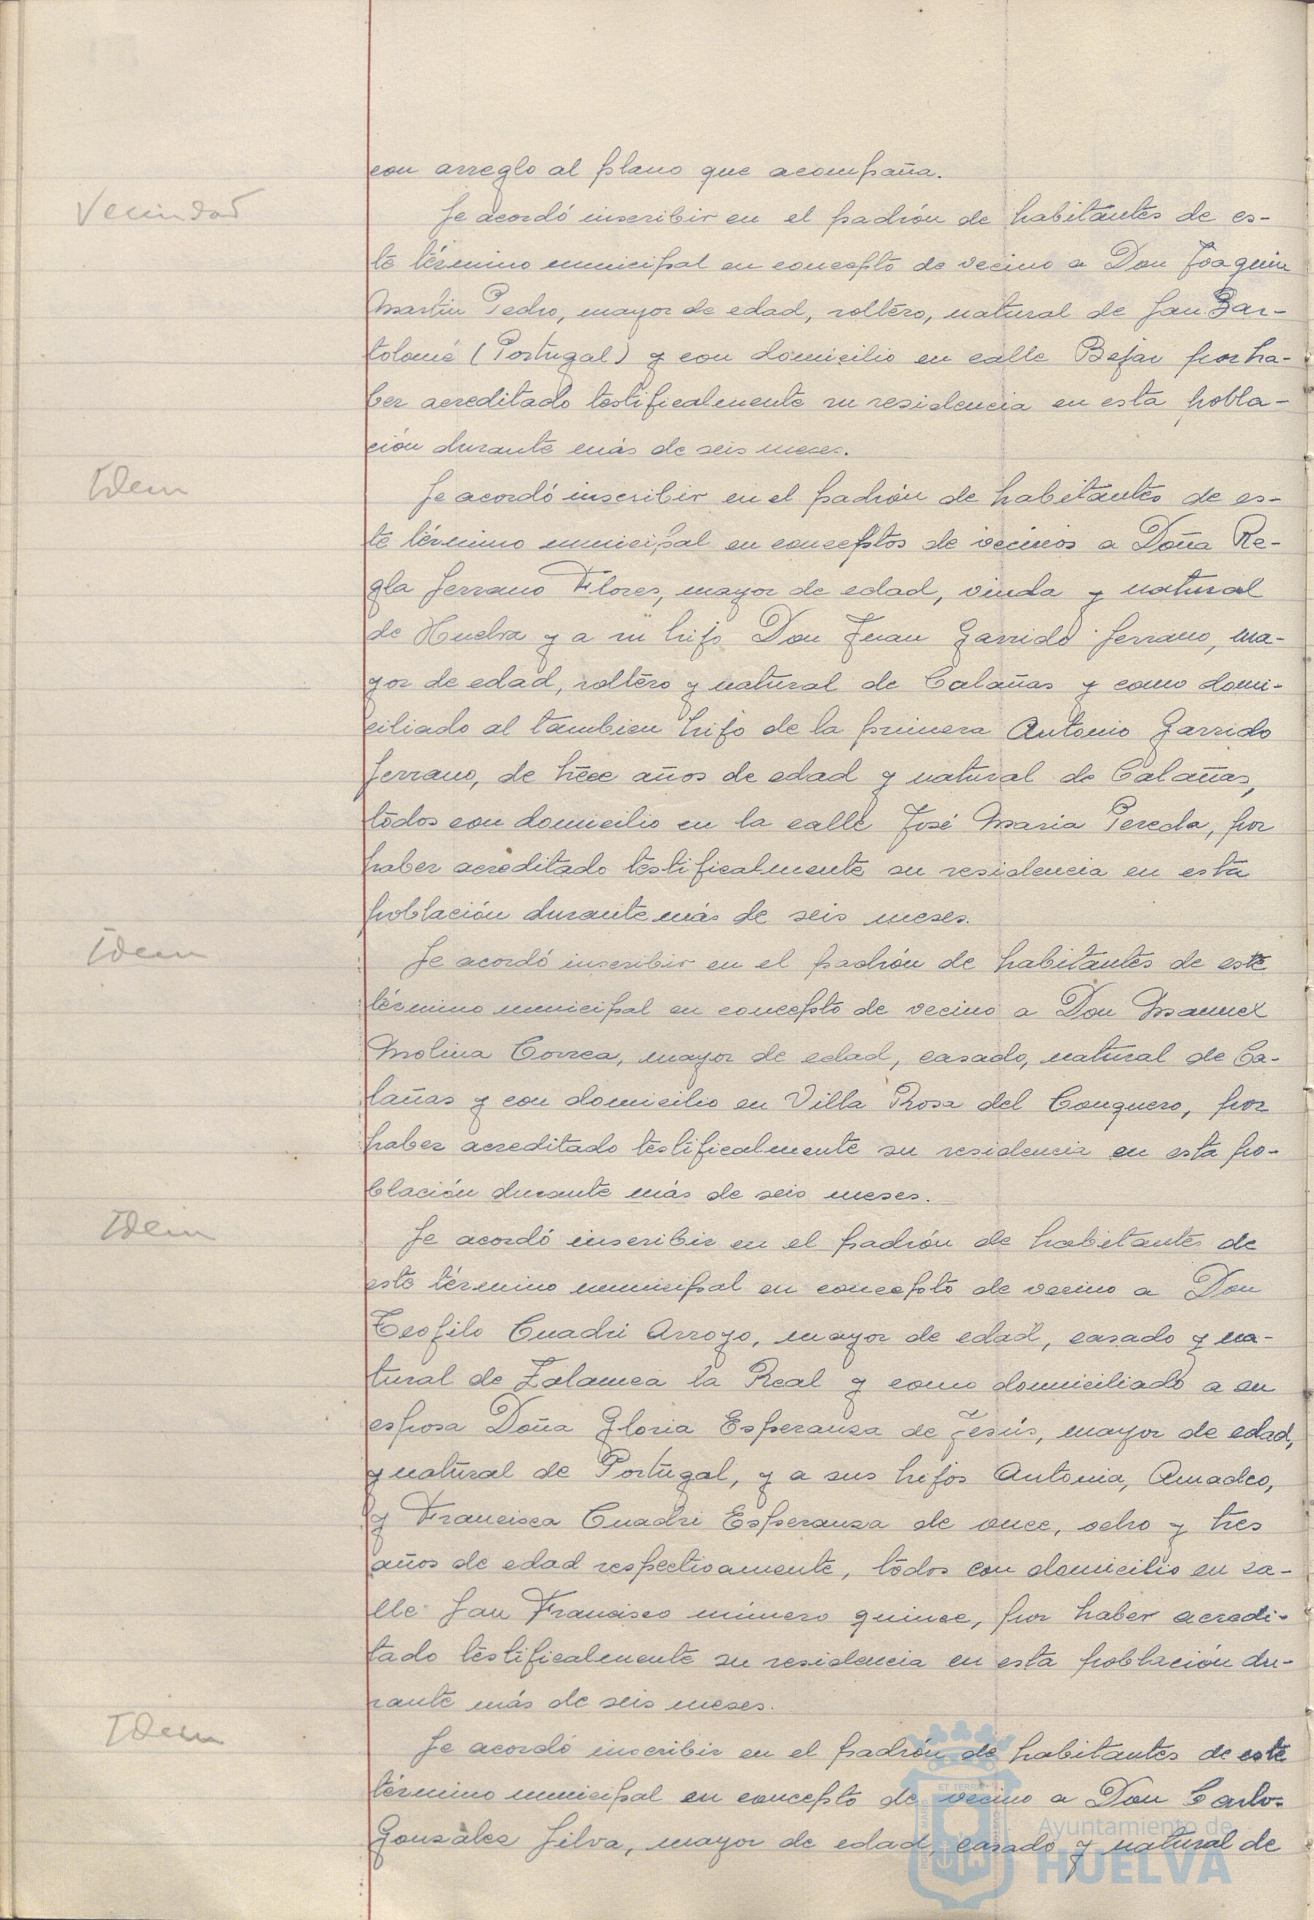 con arreglo al plano que acompaña.
Vecindad
Se acordó inscribir en el padrón de habitantes de es-
te término municipal en concepto de vecino a Don Joaquin
Martin Pedro, mayor de edad, soltero, natural de San Bar-
tolomé (Portugal) y con domicilio en calle Bejar por ha-
ber acreditado testificalmente su residencia en esta pobla-
ción durante más de seis meses.
Idem
Se acordó inscribir en el padrón de habitantes de es-
te término municipal en conceptos de vecinos a Doña Re-
gla Serrano Flores, mayor de edad, viuda y natural
de Huelva y a su hijo Don Juan Garrido Serrano, ma-
yor de edad, soltero y natural de Calañas y como domi-
ciliado al tambien hijo de la primera Antonio Garrido
Serrano, de trece años de edad y natural de Calañas,
todos con domicilio en la calle José Maria Pereda, por
haber acreditado testificalmente su residencia en esta
población durante más de seis meses.
Idem
Se acordó inscribir en el padrón de habitantes de este
término municipal en concepto de vecino a Don Manuel
Molina Correa, mayor de edad, casado, natural de Ca-
lañas y con domicilio en Villa Rosa del Conquero, por
haber acreditado testificalmente su residencia en esta po-
blación durante más de seis meses.
Idem
Se acordó inscribir en el padrón de habitantes de
este término municipal en concepto de vecino a Don
Teofilo Cuadri Arroyo, mayor de edad, casado y na-
tural de Zalamea la Real y como domiciliado a su
esposa Doña Gloria Esperanza de Jesús, mayor de edad,
y natural de Portugal, y a sus hijos Antonia, Amadeo,
y Francisca Cuadri Esperanza de once, ocho y tres
años de edad respectivamente, todos con domicilio en ca-
lle San Francisco número quince, por haber acredi-
tado testificalmente su residencia en esta población du-
rante más de seis meses.
Idem
Se acordó inscribir en el padrón de habitantes de este
término municipal en concepto de vecino a Don Carlos
Gonzales Silva, mayor de edad, casado y natural de
Ayuntamiento de
HUELVA